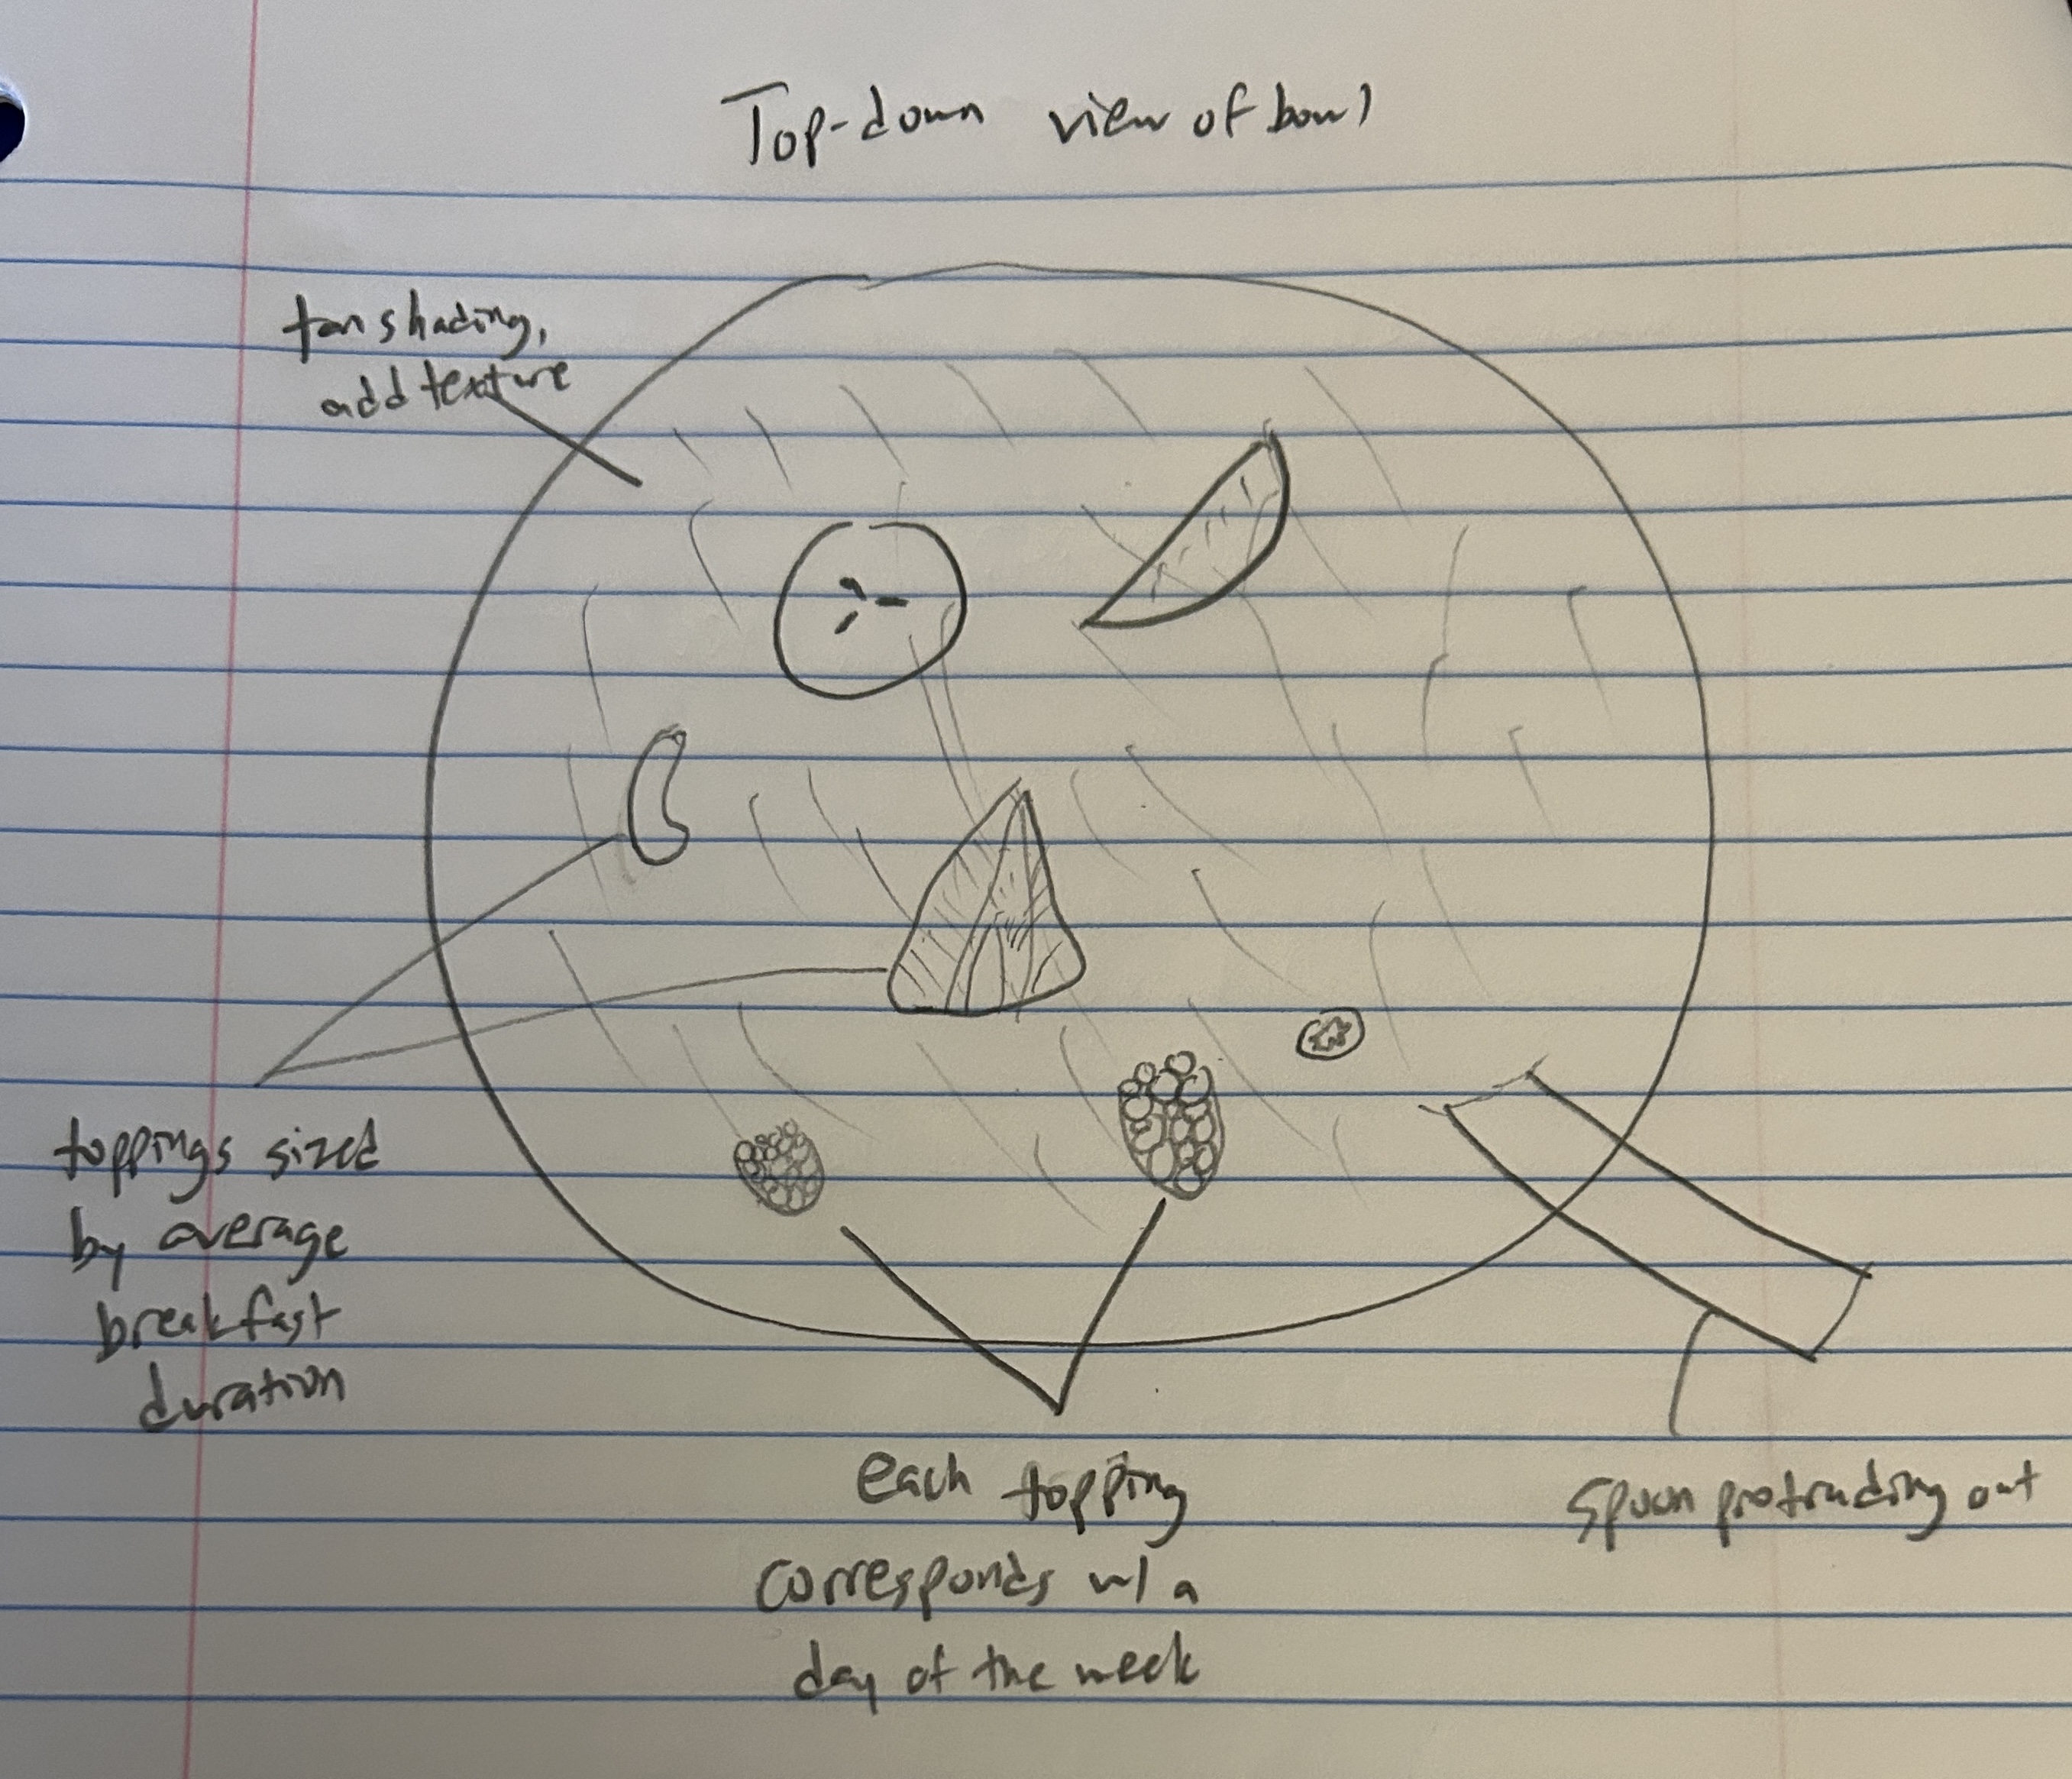 Top-down view of bowl
tan shading,
add texture
toppings sized
by average
breakfast
duration
each topping
corresponds w/ a
day of the week
spoon protruding out